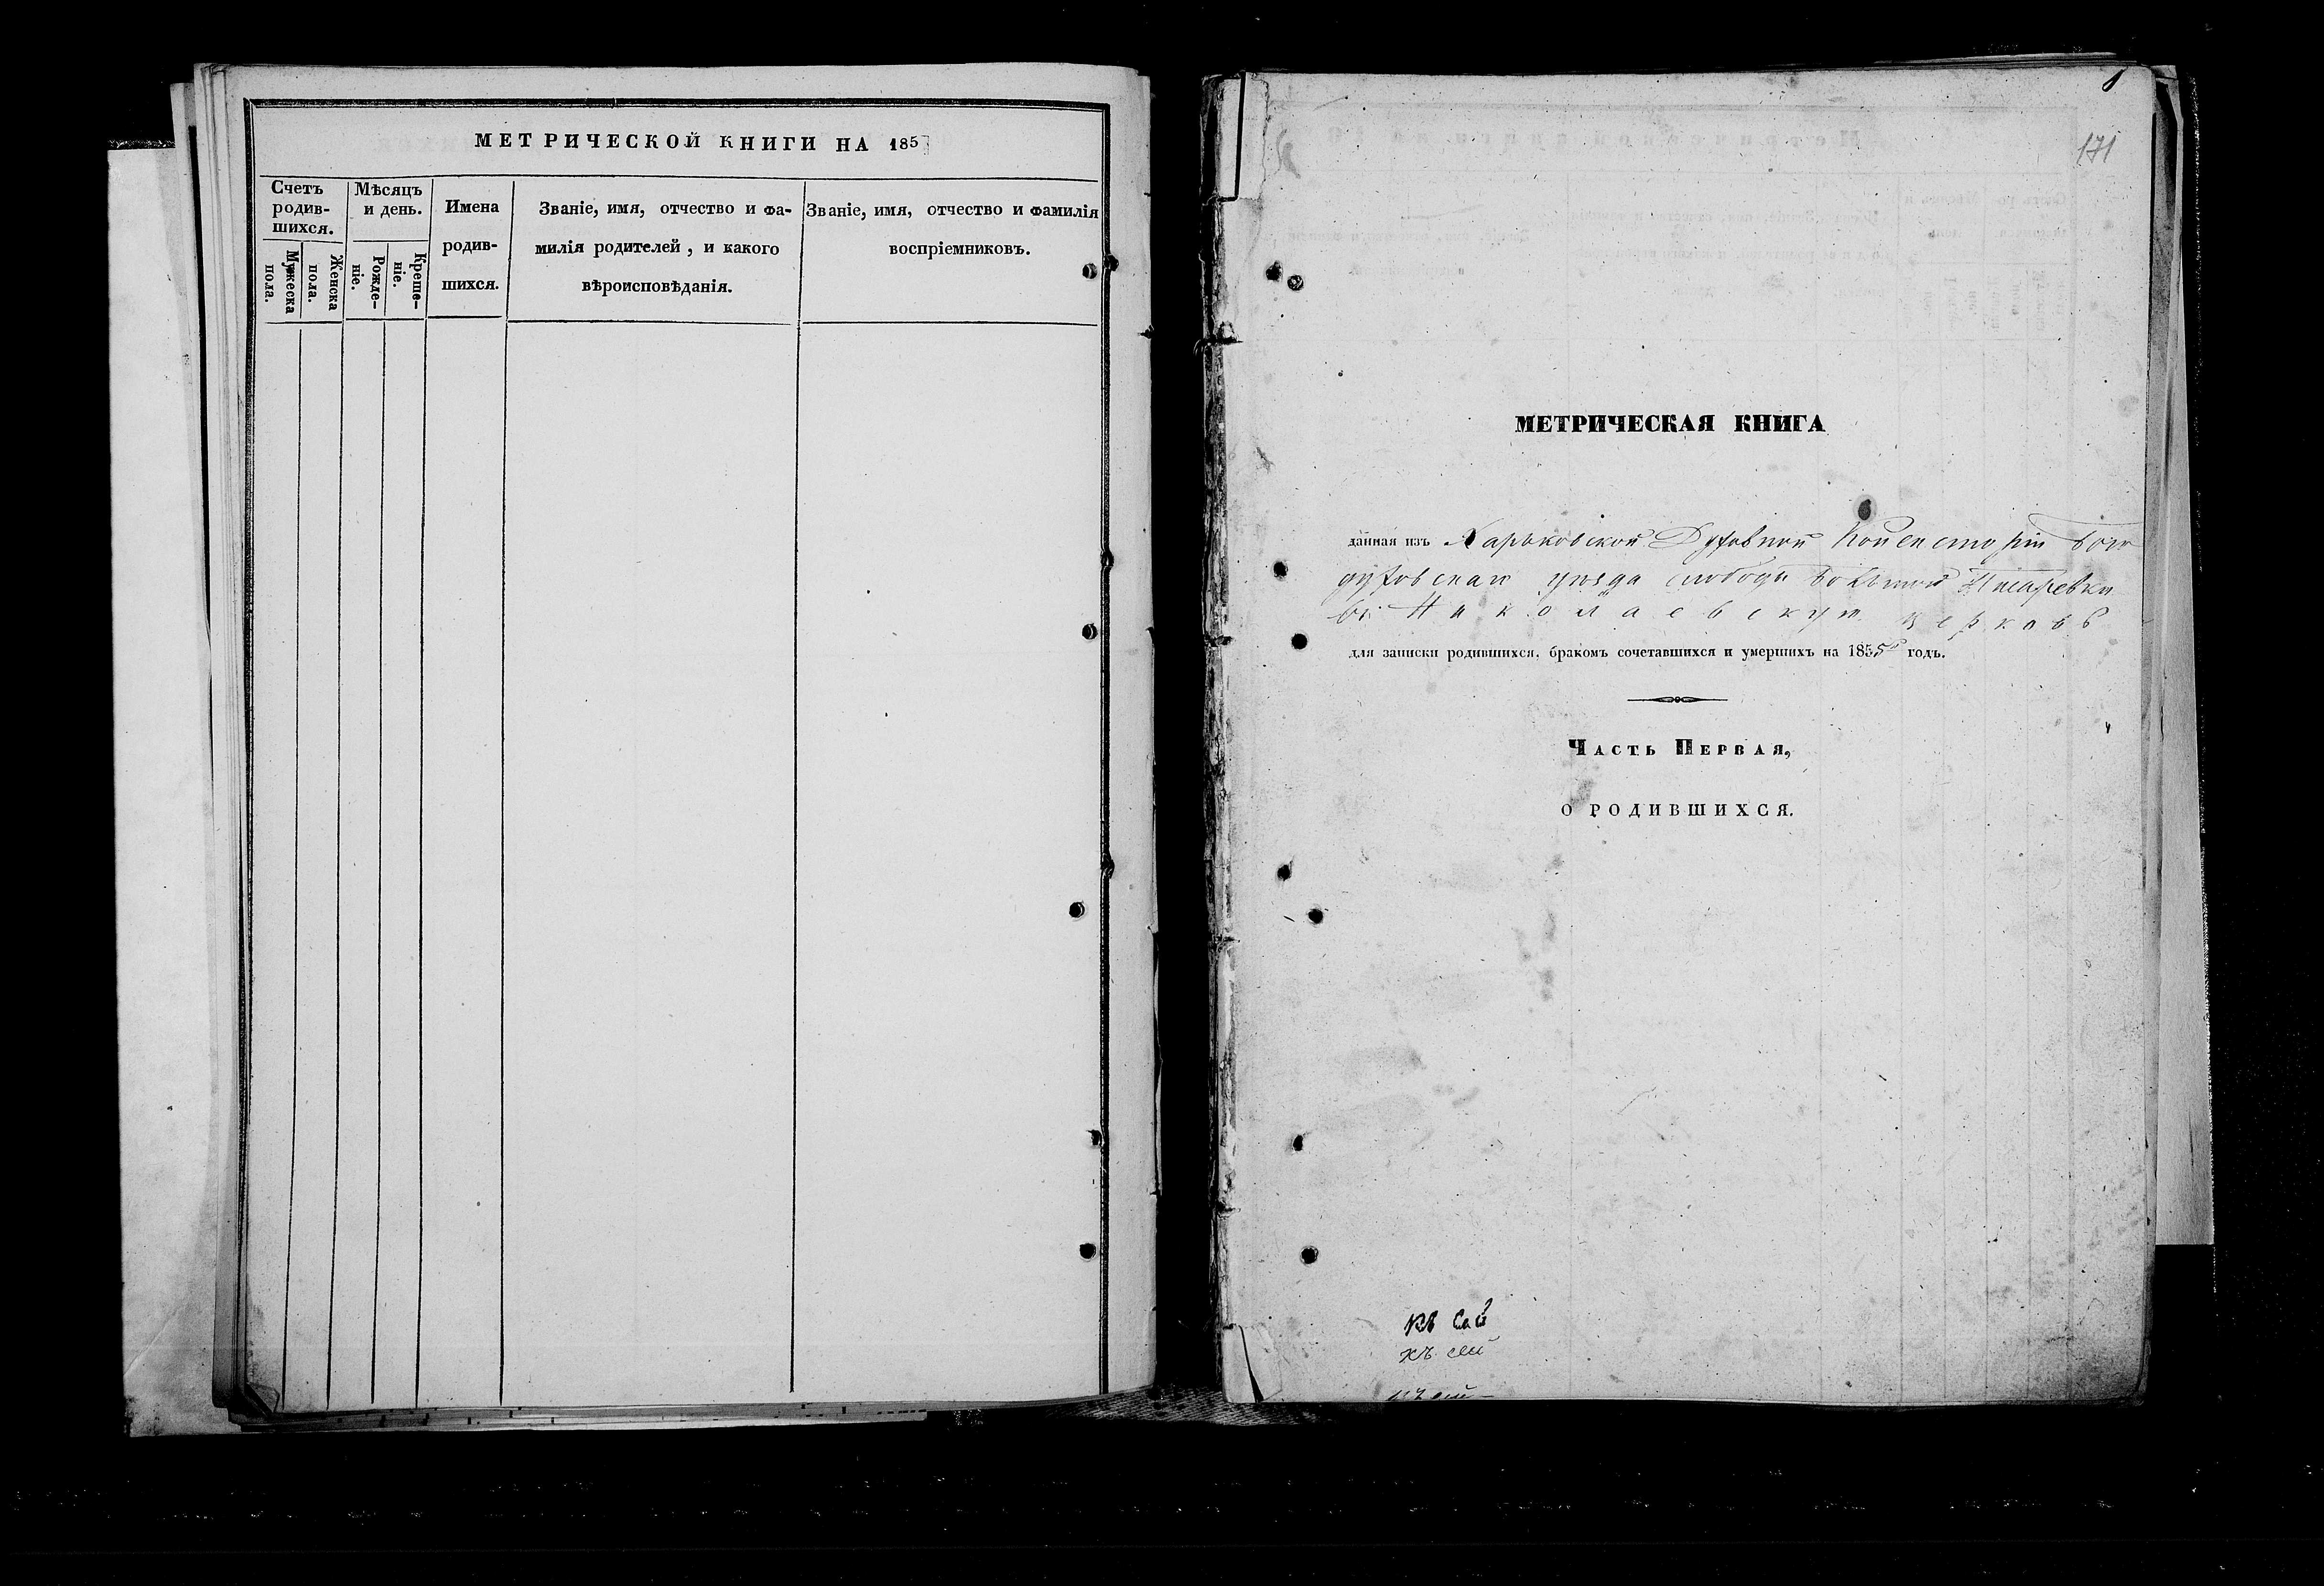 МЕТРИЧЕСКОЙ КНИГИ НА 185
Счетъ
родив-
шихся.
Мужеска
пола.
Женска
пола.
Мѣсяцъ
и день.
Рожде-
ніе.
Креще-
ніе.
Имена
родив-
шихся.
Званіе, имя, отчество и фа-
милія родителей, и какого
вѣроисповѣданія.
Званіе, имя, отчество и фамилія
воспріемниковъ.
171
МЕТРИЧЕСКАЯ КНИГА
данная изъ Харьковской Духовной Консисторіи Бого
духовскаго уѣзда слободы Большой Писаревки
въ Николаевскую церковь
для записки родившихся, бракомъ сочетавшихся и умершихъ на 1855 годъ.
Часть Первая,
О РОДИВШИХСЯ.